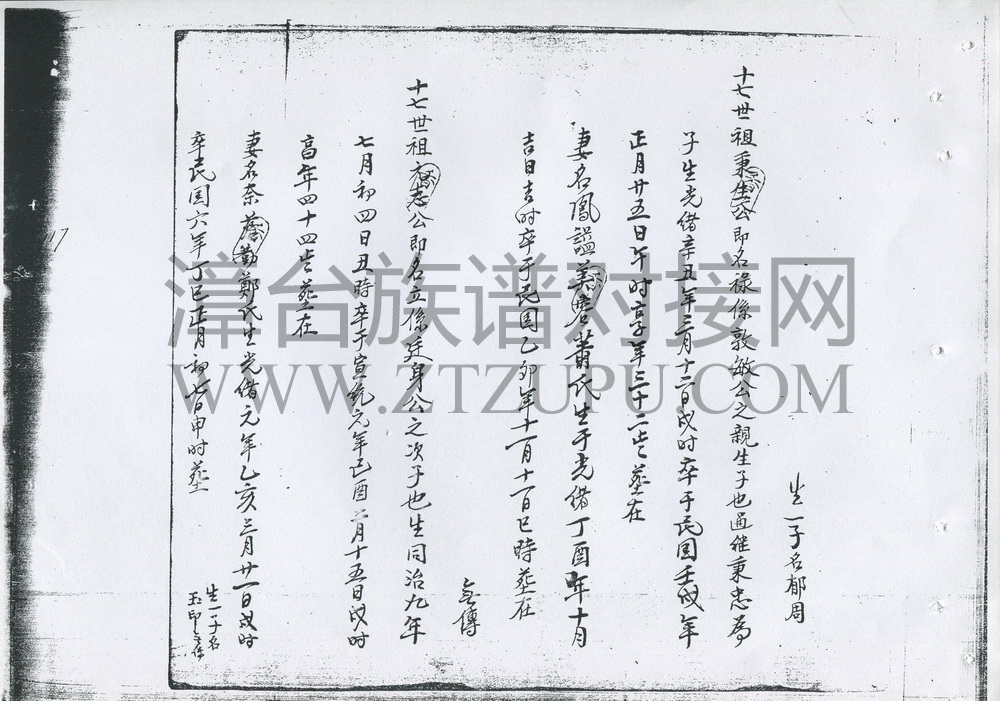 生一子名郁周
十七世祖秉生公即名祿係敦敏公之親生子也過继秉忠為
子生光緒辛丑年三月十二日戌时卒于民国壬戌年
正月廿五日午时享年三十二岁塟在
妻名鳳謚美 蕭氏生于光緒丁酉年十月
吉日吉时卒于民国乙卯年十一月十一日巳時塟在
無傳
十七世祖 志公即名立係廷身公之次子也生同治九年
七月初四日丑時卒于宣統元年己酉二月十五日戌时
高年四十四岁塟在
妻名奈 勤鄭氏生光緒元年乙亥三月廿一日戌时
卒民国六年丁巳正月初七日申时塟
生一子名
玉印
17
漳台族谱对接网
WWW.ZTZUPU.COM